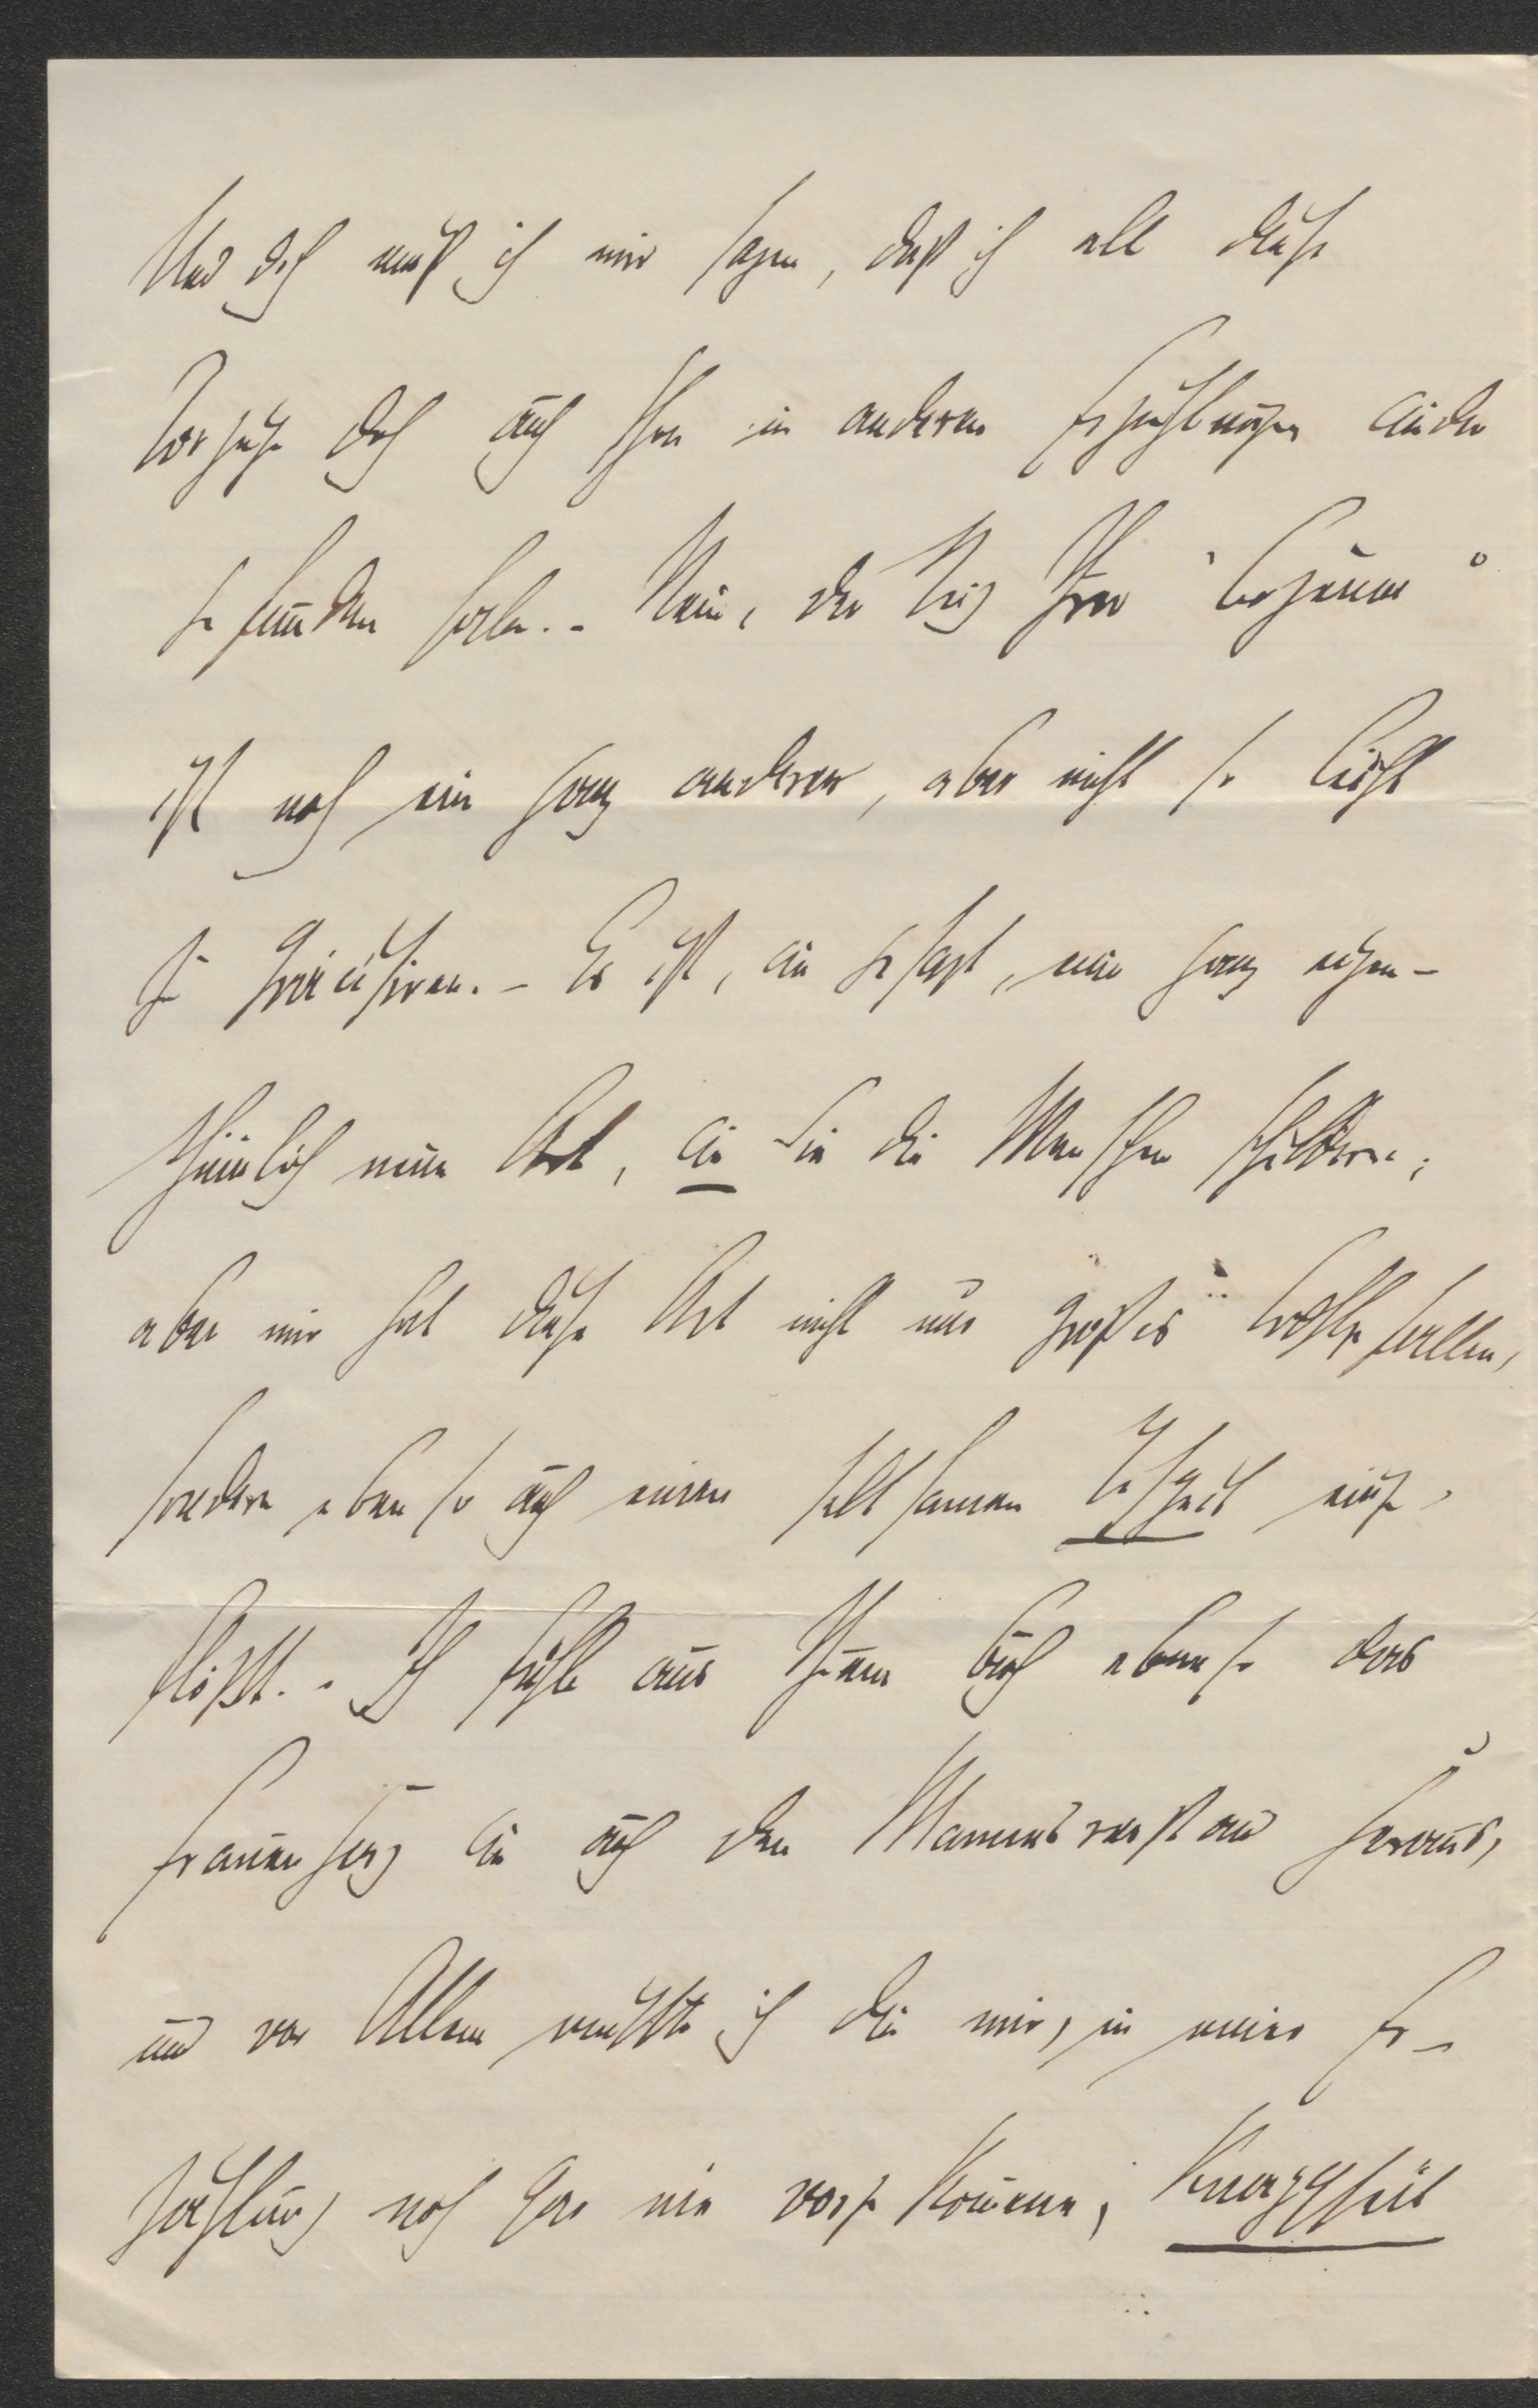 Und doch muß ich mir sagen, daß ich all diese
Vorzüge doch auch schon in anderen Erzählungen wieder
gefunden habe. - Nein, der Reiz Ihrer "Bozena"
ist noch ein ganz anderer, aber nicht so leicht
zu präcisiren. - Es ist, wie gesagt, eine ganz eigen-
thümlich neue Art, wie Sie die Menschen schildern;
aber mir hat diese Art nicht nur großes Wohlgefallen,
sondern ebenso auch einen seltsamen Respect einge-
flößt. - Ich fühle aus Ihrem Buch ebenso das
Frauenherz wie auch den Mannesverstand heraus,
und vor Allem rechte ich die mir, in einer Er-
zählung noch gar nie vorgekommene, Knappheit